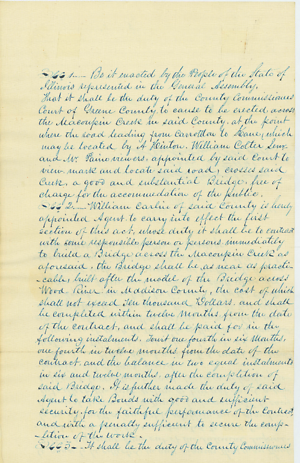 Sec 1. Be it enacted by the People of the State of
Illinois represented in the General Assembly.
That it shall be the duty of the County Commissioners
Court of Greene County to cause to be erected across
the Macoupin Creek in said County, at the point
where the road leading from Carrollton to Kane, which
may be located by A Hinton. William Colter
and Wm. viewers, appointed by said Court to
view mark and locate said road; crosses said
Creek, a good and substantial Bridge, free of
charge for the accommodation of the public.
Sec 2. William Carlin of said County is hereby
appointed Agent to carry into effect the first
section of this act, whose duty it shall be to contract
with some responsible person or persons immediately
to build a Bridge across the Macoupin Creek as
aforesaid, the Bridge shall be as near as practi-
cable, built after the model of the Bridge across
Wood River in Madison County, the cost of which
shall not exceed Ten thousand Dollars, and shall
be completed within twelve Months from the date
of the contract, and shall be paid for in the
following instalments. Tout one fourth in six Months,
one fourth in twelve Months from the date of the
contract and the balance in two equal instalments
in six and twelve months, after the completion of
said Bridge. It is further made the duty of said
Agent to take Bonds with good and sufficient
security, for the faithful performance of the contract
and with a penalty sufficient to secure the comp-
letion of the work.
Sec 3. It shall be the duty of the County Commissioners